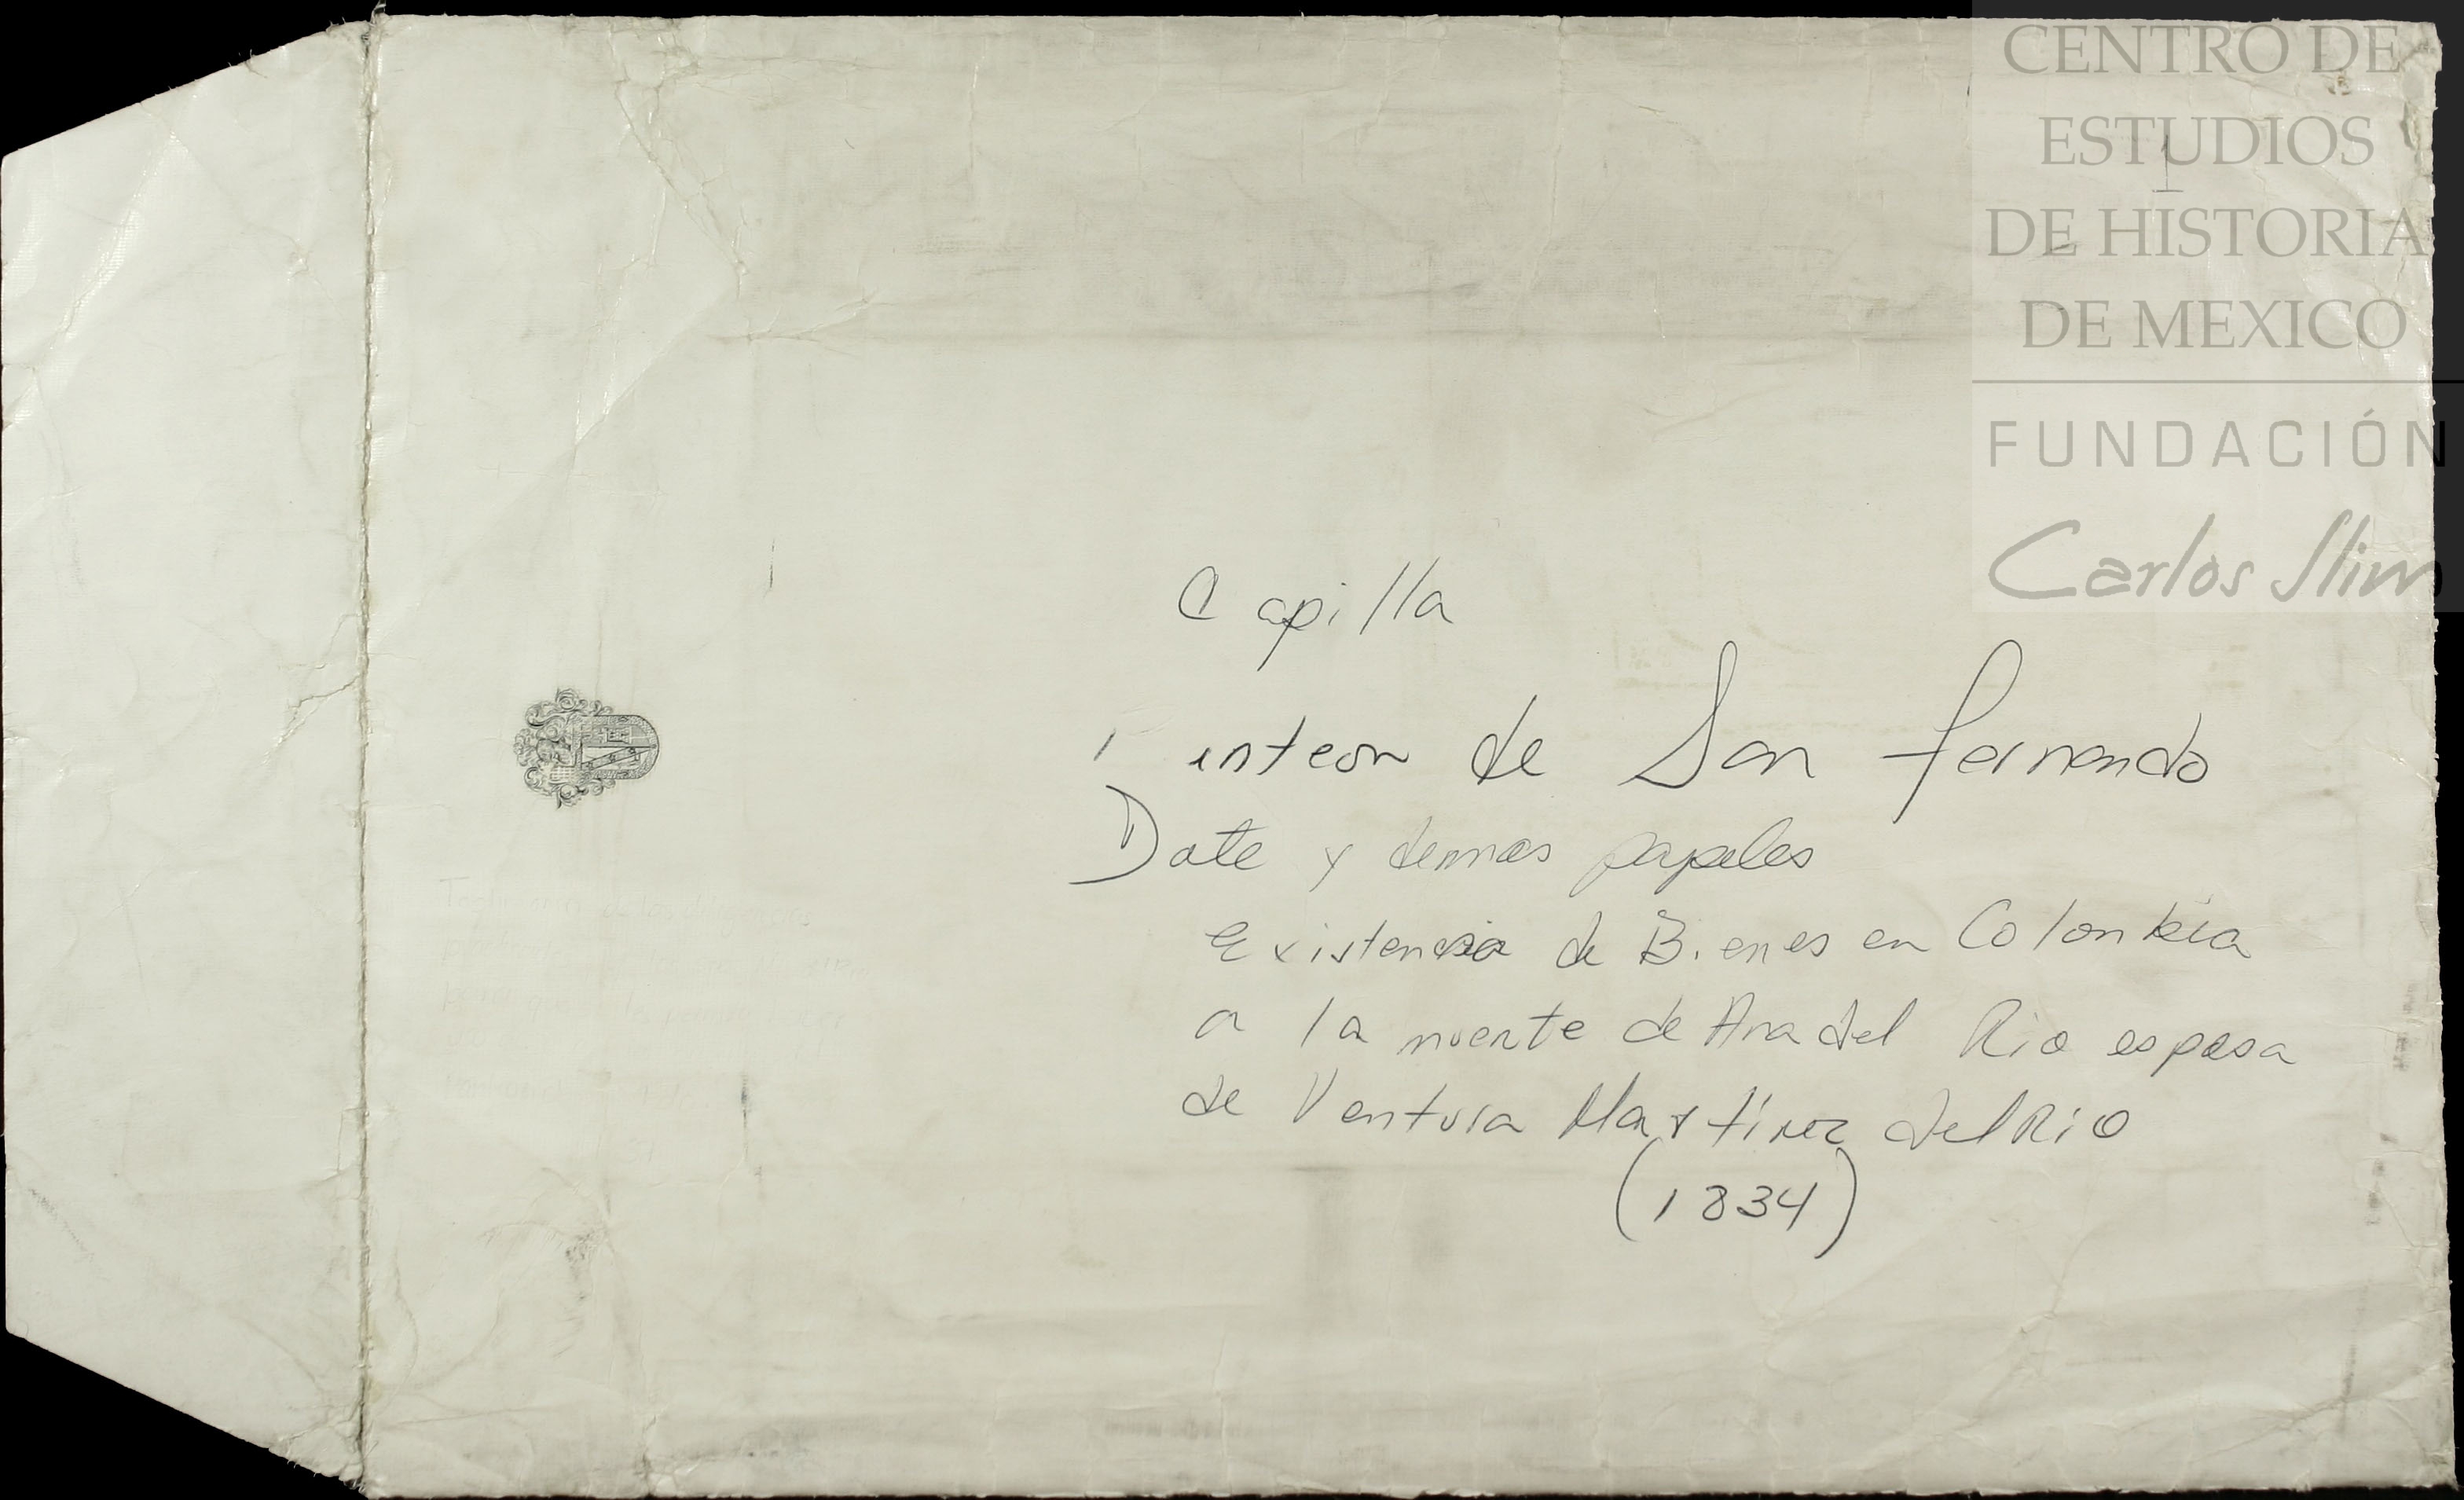 1
Capilla
Panteon de San Fernando
Dote y demas papeles
Existencia de Bienes en Colombia
a la muerte de Ana del Rio esposa
de Ventura Martínez del Rio
(1834)
CENTRO DE
ESTUDIOS
DE HISTORIA
DE MEXICO
FUNDACIÓN
Carlos Slim